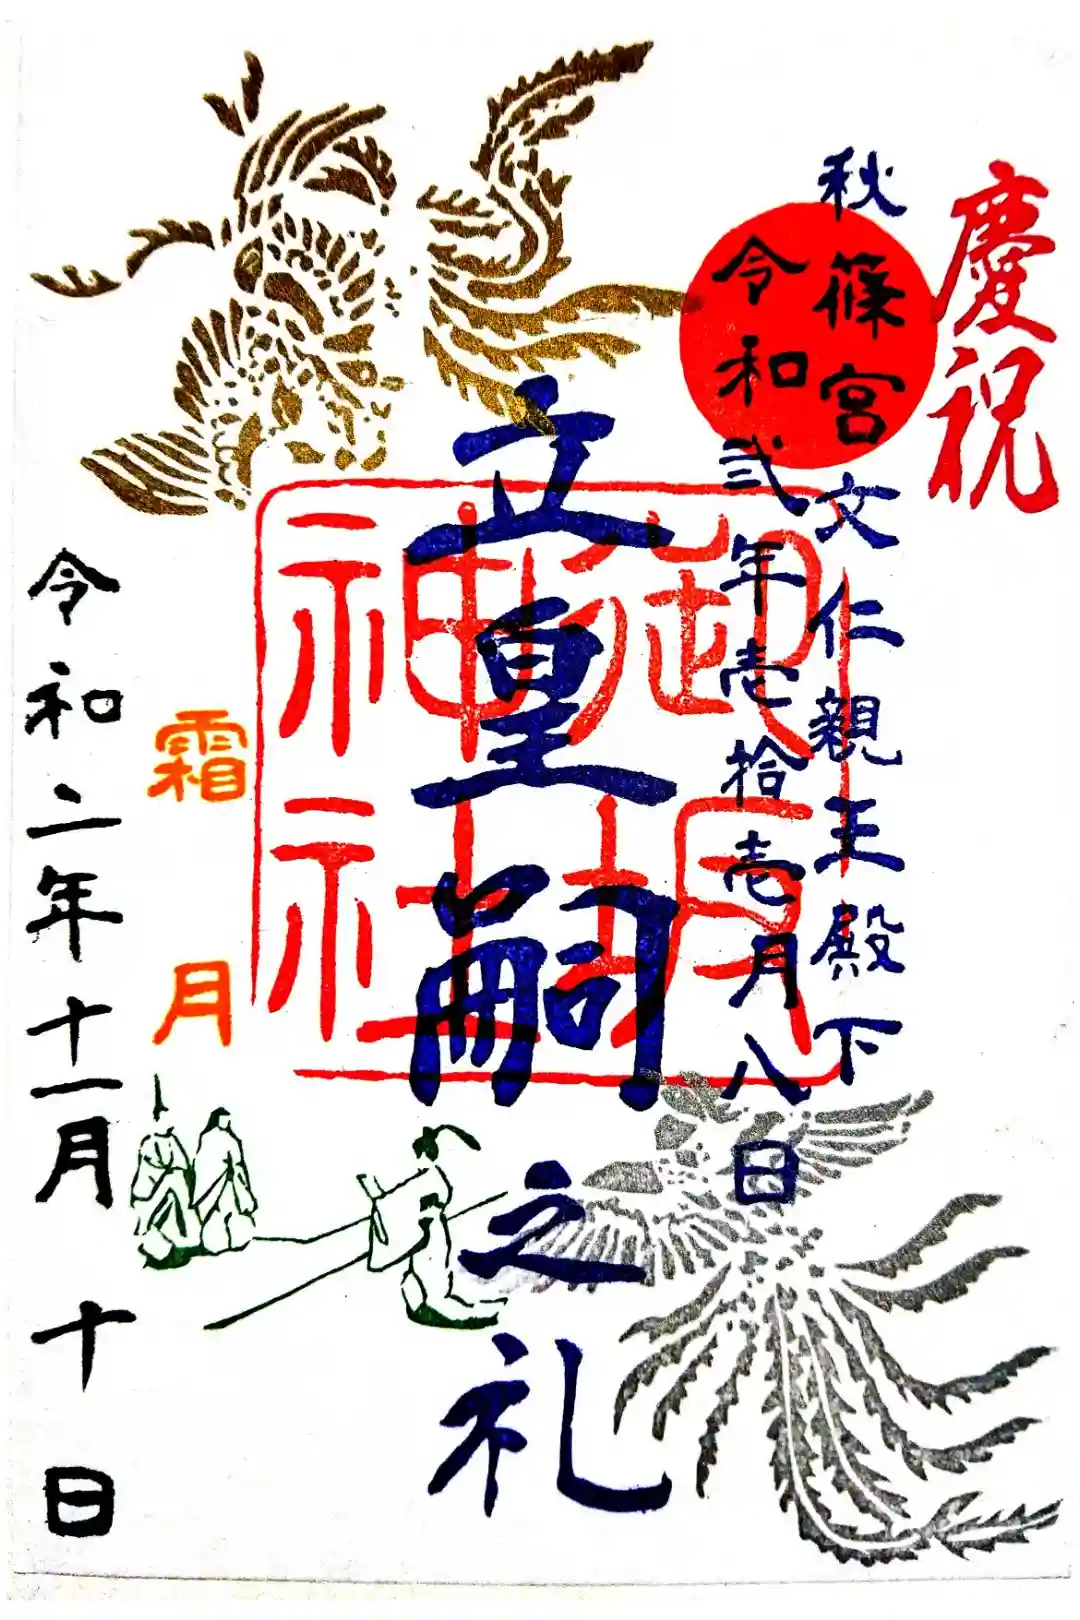 慶祝
秋篠宮文仁親王殿下
令和弐年壱拾壱月八日
立皇嗣之礼
御坂
神社
霜月
令和二年十一月十日